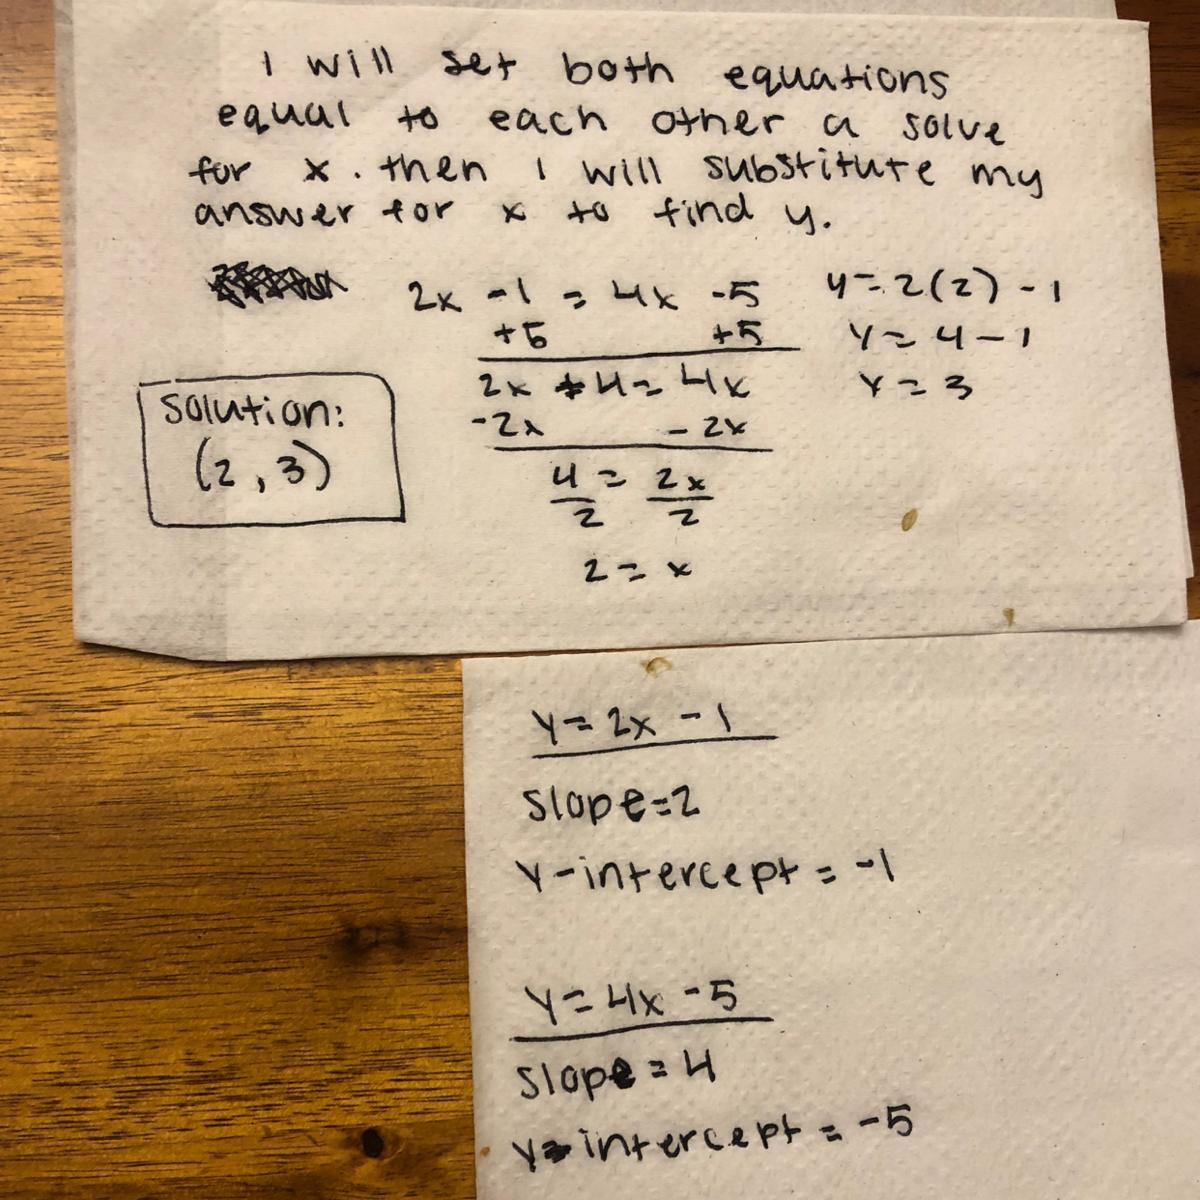 I will set both equations
equal to each other a solve
for x. then I will substitute my
answer for x to find y.
2x -1 = 4x -5
+5 +5
2x +4 = 4x
-2x - 2x
4 = 2x
2 2
2 = x
y = 2(2) - 1
y = 4 - 1
y = 3
Solution:
(2, 3)
y = 2x - 1
slope = 2
y-intercept = -1
y = 4x - 5
slope = 4
y-intercept = -5